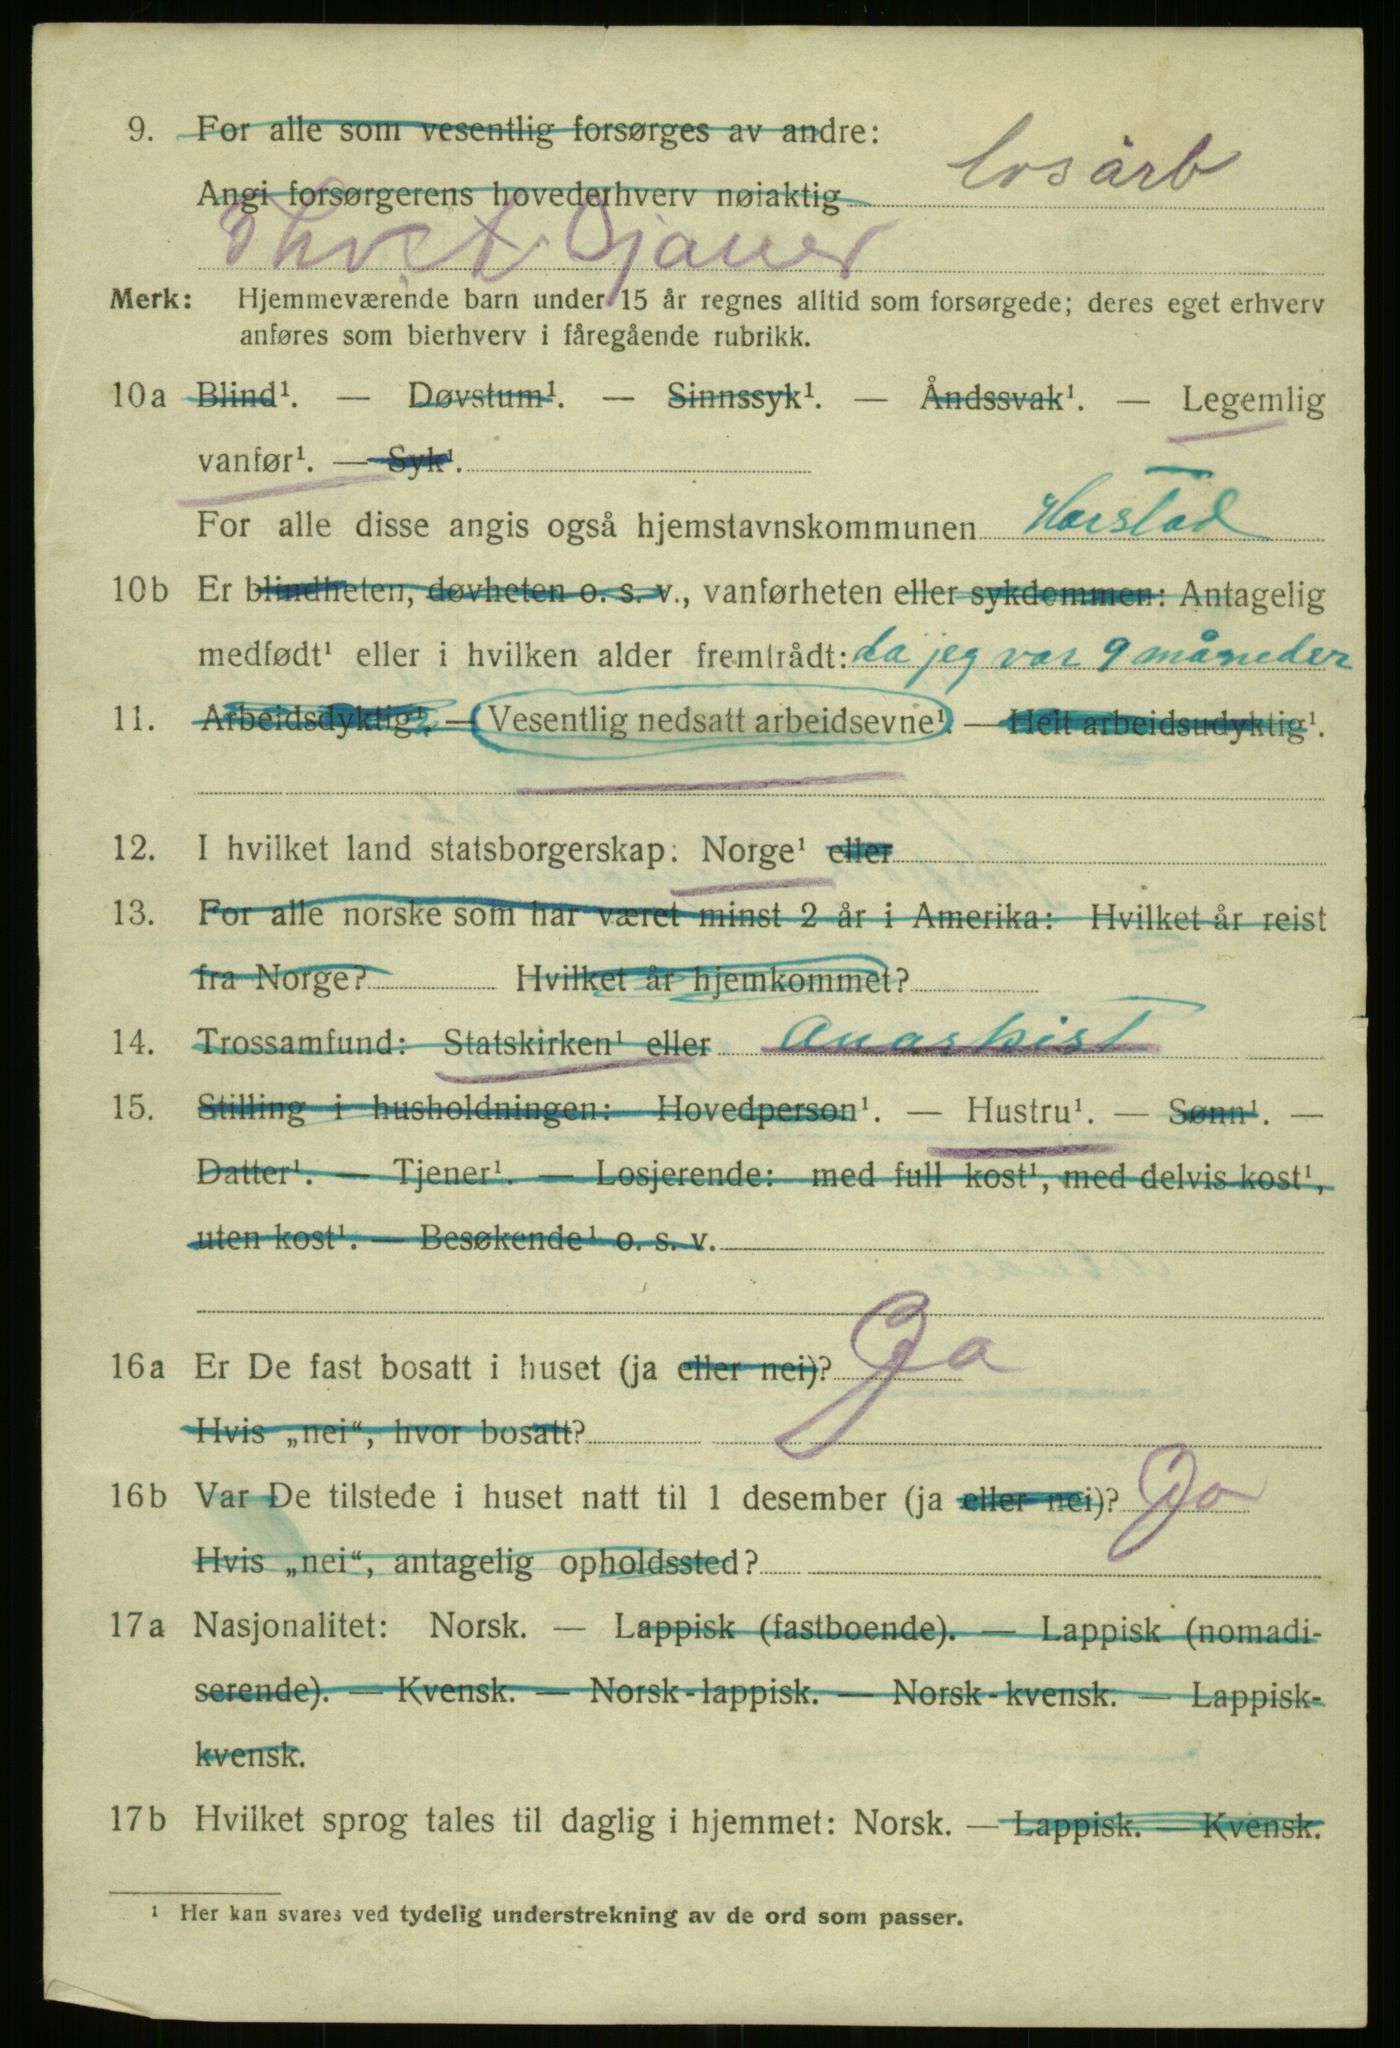 9. For alle som vesentlig forsørges av andre:
Angi forsørgerens hovederhverv nøiaktig losarb
Merk: Hjemmeværende barn under 15 år regnes alltid som forsørgede; deres eget erhverv
anføres som bierhverv i fåregående rubrikk.
10a Blind¹. — Døvstum¹. — Sinnssyk¹. — Åndssvak¹. — Legemlig
vanfør¹. — Syk¹.
For alle disse angis også hjemstavnskommunen Harstad
10b Er blindheten, døvheten o. s. v., vanførheten eller sykdommen: Antagelig
medfødt¹ eller i hvilken alder fremtrådt: da jeg var 9 måneder
11. Arbeidsdyktig¹. — Vesentlig nedsatt arbeidsevne¹. — Helt arbeidsudyktig¹.
12. I hvilket land statsborgerskap: Norge¹ eller
13. For alle norske som har været minst 2 år i Amerika: Hvilket år reist
fra Norge? Hvilket år hjemkommet?
14. Trossamfund: Statskirken¹ eller Anarkist
15. Stilling i husholdningen: Hovedperson¹. — Hustru¹. — Sønn¹. —
Datter¹. — Tjener¹. — Losjerende: med full kost¹, med delvis kost¹,
uten kost¹. — Besøkende¹ o. s. v.
16a Er De fast bosatt i huset (ja eller nei)? Ja
Hvis „nei“, hvor bosatt?
16b Var De tilstede i huset natt til 1 desember (ja eller nei)? Ja
Hvis „nei“, antagelig opholdssted?
17a Nasjonalitet: Norsk. — Lappisk (fastboende). — Lappisk (nomadi-
serende). — Kvensk. — Norsk-lappisk. — Norsk-kvensk. — Lappisk-
kvensk.
17b Hvilket sprog tales til daglig i hjemmet: Norsk. — Lappisk. — Kvensk.
¹ Her kan svares ved tydelig understrekning av de ord som passer.